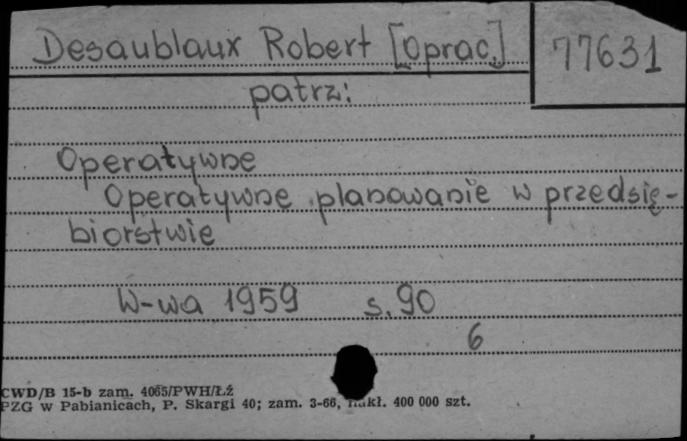 Desaublaux Robert [Oprac.]
77631
patrz:
Operatywne
Operatywne planowanie w przedsię-
biorstwie
W-wa 1959 s. 90
6
CWD/B 15-b zam. 4065/PWH/Łż
PZG w Pabianicach, P. Skargi 40; zam. 3-66, nakł. 400 000 szt.